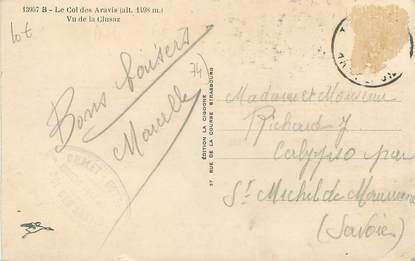 13967 B - Le Col des Aravis (alt. 1498 m.)
Vu de la Clusaz
lot
Bons baisers
Marcelle
74
ÉDITION LA CIGOGNE
37 RUE DE LA COURSE STRASBOURG
Madame et Monsieur
Richard J
Calypso par
St Michel de Maurienne
(Savoie)